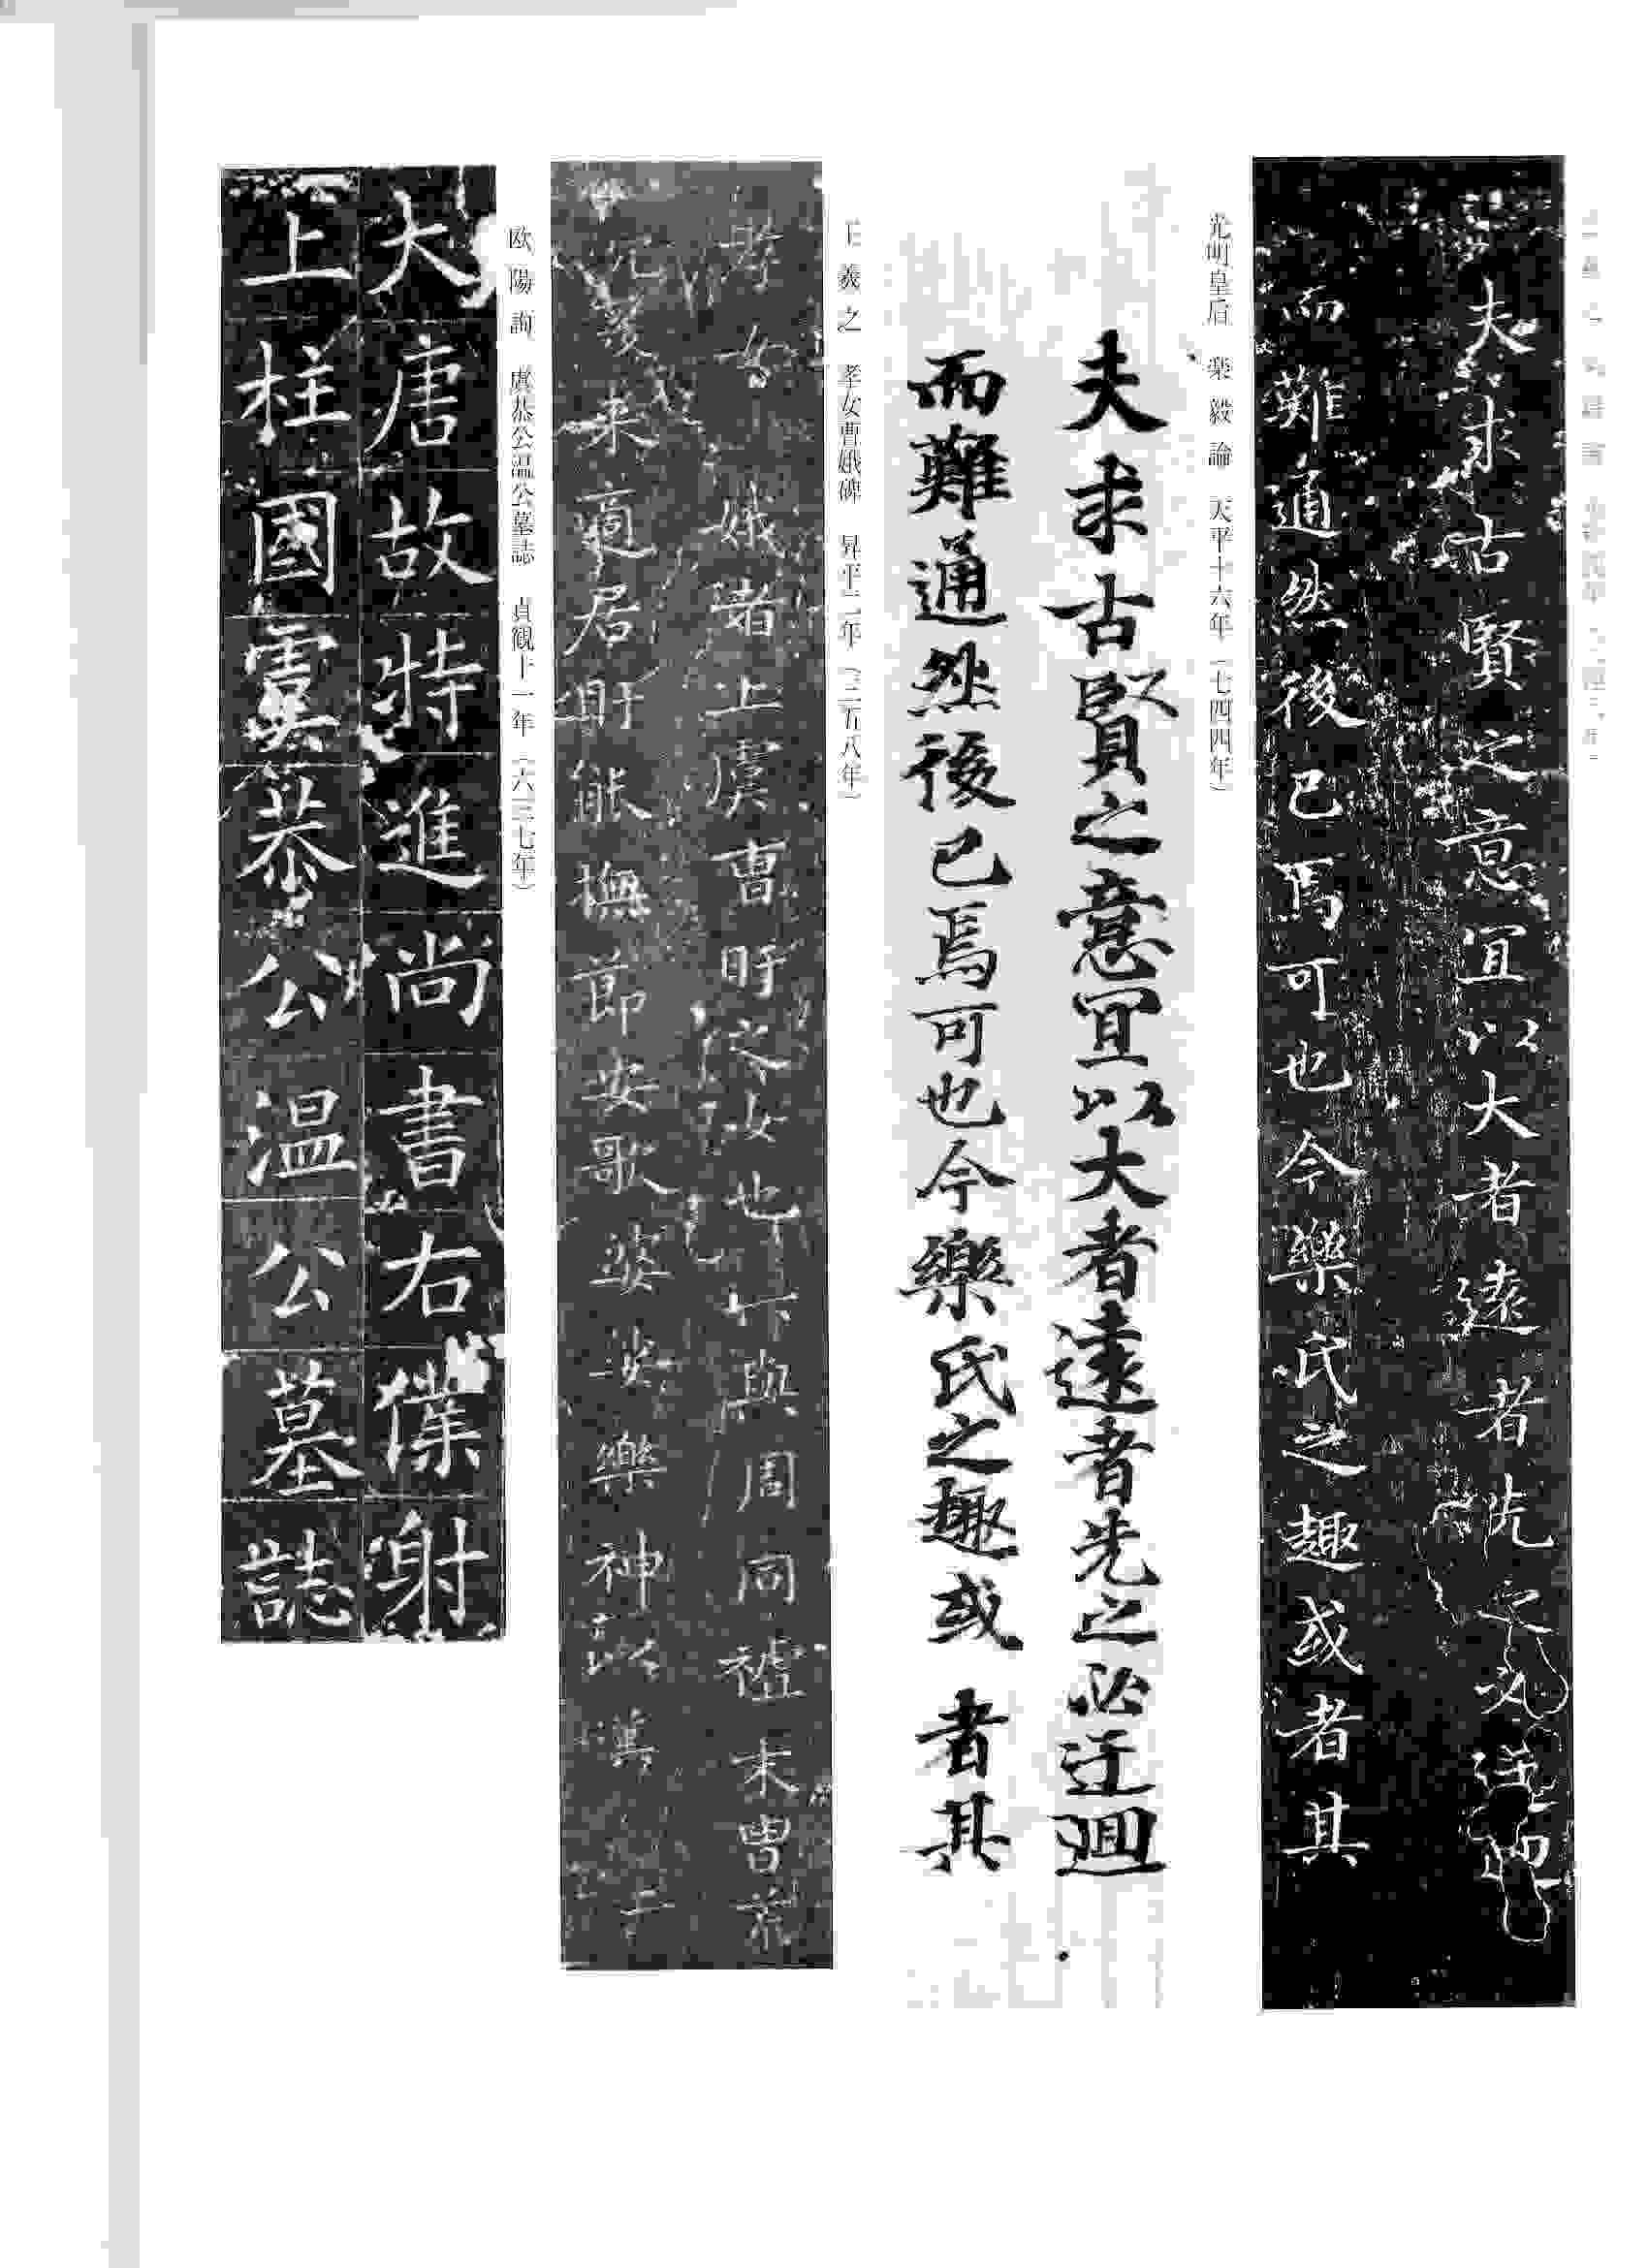 夫求古賢之意宜以大者遠者先
而難通然後已焉可也今樂氏之趣或者其
光明皇后 楽毅論 天平十六年（七四四年）
夫求古賢之意宜以大者遠者先之必迂迴
而難通然後已焉可也今樂氏之趣或者其
羲之 孝女曹娥碑 昇平二年（三五八年）
孝女曹娥者上虞曹盱之女也其先與周同祖末胄荒
沉爰来適居盱能撫節安歌婆娑樂神以漢
欧陽詢 虞恭公温公墓誌 貞観十一年（六三七年）
大唐故特進尚書右僕射
上柱國虞恭公温公墓誌